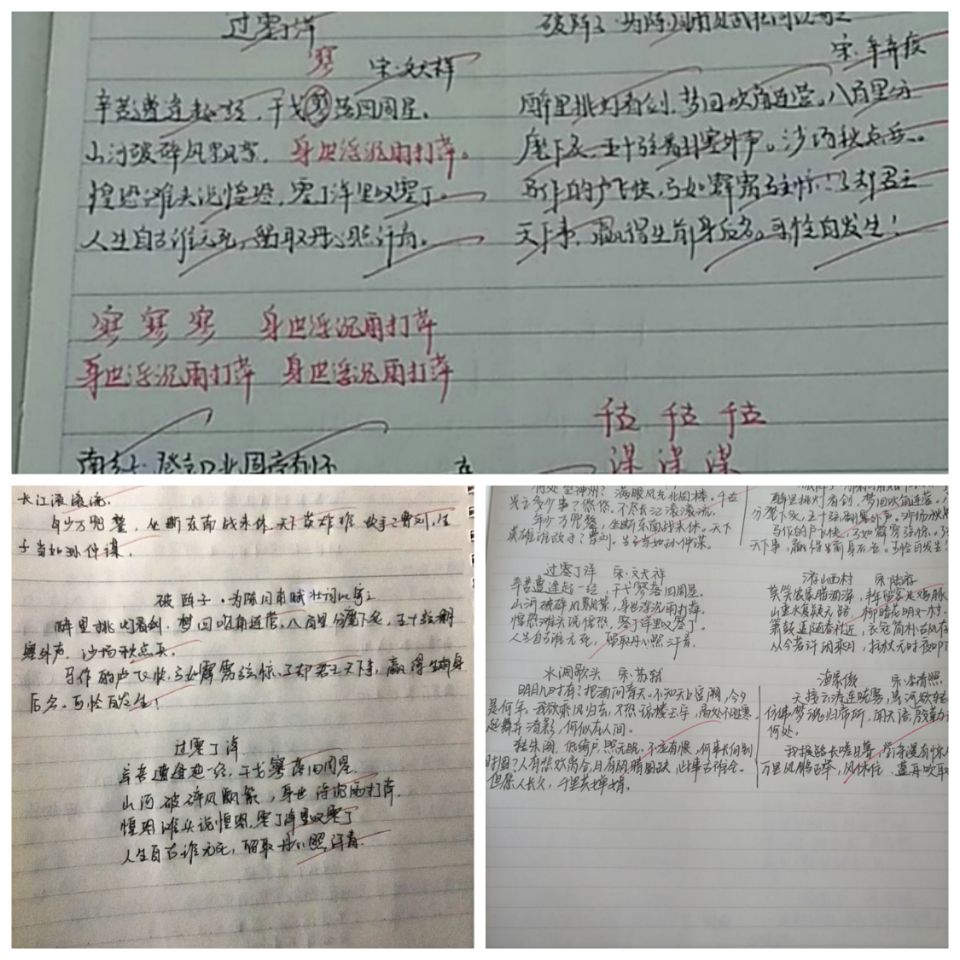 过零丁洋
寥
宋·文天祥
辛苦遭逢起一经，干戈寥落四周星。
山河破碎风飘絮，身世浮沉雨打萍。
惶恐滩头说惶恐，零丁洋里叹零丁。
人生自古谁无死，留取丹心照汗青。
寥 寥 寥 身世浮沉雨打萍
身世浮沉雨打萍 身世浮沉雨打萍
破阵子·为陈同甫赋壮词以寄之
宋·辛弃疾
醉里挑灯看剑，梦回吹角连营。八百里分
麾下炙，五十弦翻塞外声。沙场秋点兵。
马作的卢飞快，弓如霹雳弦惊。了却君王
天下事，赢得生前身后名。可怜白发生！
千古 千古 千古
南乡子·登京口北固亭有怀
长江滚滚流。
年少万兜鍪，坐断东南战未休。天下英雄谁敌手？曹刘，生
子当如孙仲谋。
破阵子·为陈同甫赋壮词以寄之
醉里挑灯看剑，梦回吹角连营。八百里分麾下炙，五十弦翻
塞外声，沙场秋点兵。
马作的卢飞快，弓如霹雳弦惊。了却君王天下事，赢得生前身
后名。可怜白发生！
过零丁洋
辛苦遭逢起一经，干戈寥落四周星
山河破碎风飘絮，身世浮沉雨打萍
惶恐滩头说惶恐，零丁洋里叹零丁
人生自古谁无死，留取丹心照汗青
何处望神州？满眼风光北固楼。千古
兴亡多少事？悠悠，不尽长江滚滚流。
年少万兜鍪，坐断东南战未休。天下
英雄谁敌手？曹刘。生子当如孙仲谋。
过零丁洋 宋·文天祥
辛苦遭逢起一经，干戈寥落四周星。
山河破碎风飘絮，身世浮沉雨打萍。
惶恐滩头说惶恐，零丁洋里叹零丁。
人生自古谁无死，留取丹心照汗青。
水调歌头 宋·苏轼
明月几时有？把酒问青天。不知天上宫阙，今夕
是何年。我欲乘风归去，不恐琼楼玉宇，高处不胜寒
起舞弄清影，何似在人间。
转朱阁，低绮户，照无眠。不应有恨，何事长向别
时圆？人有悲欢离合，月有阴晴圆缺，此事古难全。
但愿人长久，千里共婵娟。
醉里挑灯看剑，梦回吹角连营。八
分麾下炙，五十弦翻塞外声。沙场秋点
马作的卢飞快，弓如霹雳弦惊。了
天下事，赢得生前身后名。可怜白发生！
游山西村 宋·陆游
莫笑农家腊酒浑，丰年留客足鸡豚
山重水复疑无路，柳暗花明又一村。
箫鼓追随春社近，衣冠简朴古风存
从今若许闲乘月，拄杖无时夜叩门
渔家傲 宋·李清照
天接云涛连晓雾，星河欲转
仿佛梦魂归帝所，闻天语，殷勤
何处。
我报路长嗟日暮，学诗谩有惊人
万里风鹏正举，风休住，蓬舟吹取